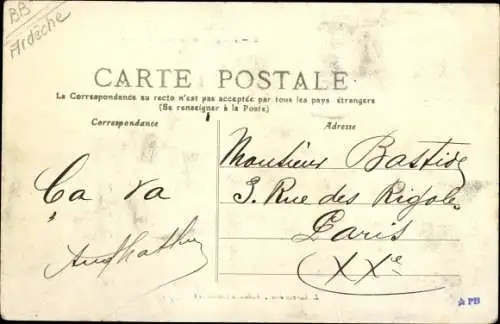 BB
Ardèche
CARTE POSTALE
La Correspondance au recto n'est pas acceptée par tous les pays étrangers
(Se renseigner à la Poste)
Correspondance
Adresse
Monsieur Bastide
3, Rue des Rigoles
Paris
XXe
Ça va
PB